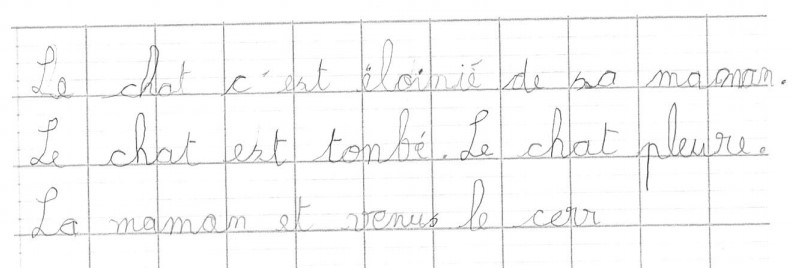 Le chat c'est éloinié de sa maman.
Le chat est tonbé. Le chat pleure.
La maman et venus le cerr